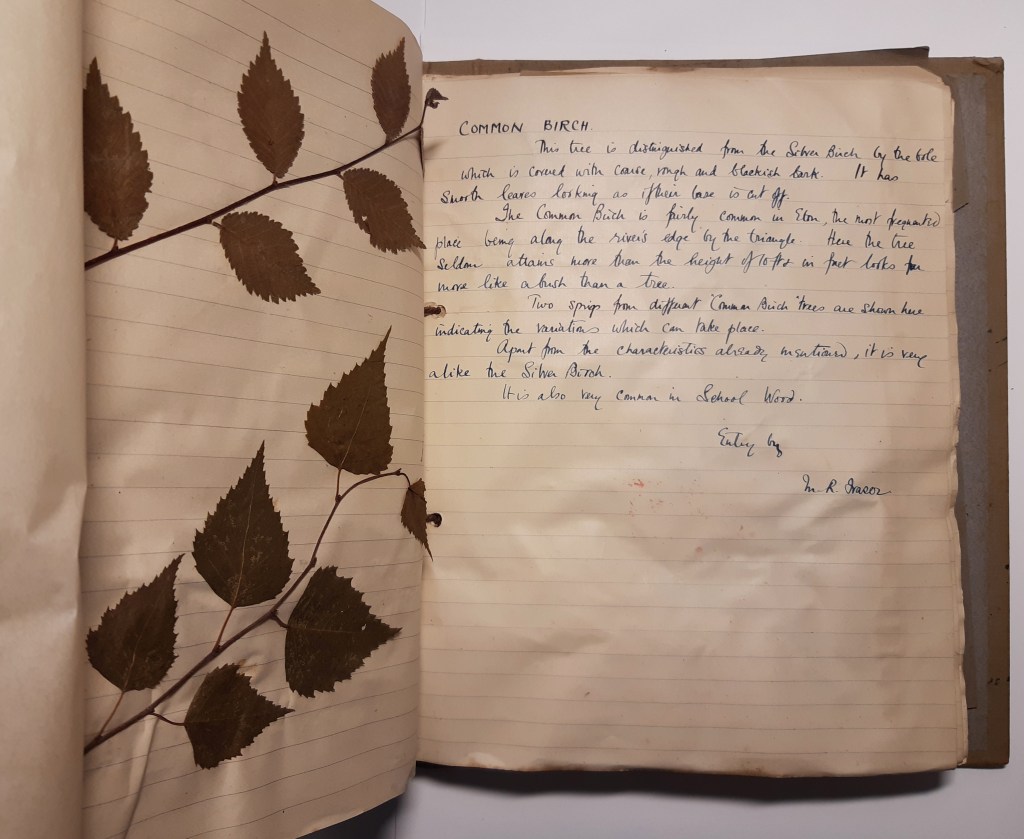 COMMON BIRCH.
This tree is distinguished from the Silver Birch by the bole
which is covered with coarse, rough and blackish bark. It has
smooth leaves looking as if their base is cut off.
The Common Birch is fairly common in Eton, the most frequented
place being along the river's edge by the triangle. Here the tree
seldom attains more than the height of 10ft & in fact looks far
more like a bush than a tree.
Two sprigs from different "Common Birch" trees are shown here
indicating the variations which can take place.
Apart from the characteristics already mentioned, it is very
alike the Silver Birch.
It is also very common in School Wood.
Entry by
M. R. Fraser